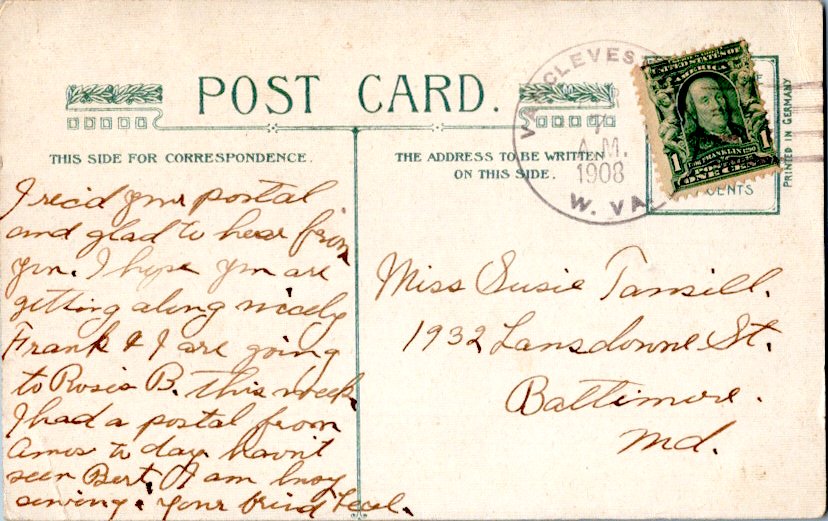 POST CARD.
THIS SIDE FOR CORRESPONDENCE.
THE ADDRESS TO BE WRITTEN
ON THIS SIDE.
CLEVES
7
A.M.
1908
W. VA.
UNITED STATES OF
AMERICA
1 FRANKLIN 1
POSTAGE
ONE CENT
CENTS
PRINTED IN GERMANY
I rec'd your postal
and glad to hear from
you. I hope you are
getting along nicely
Frank & I are going
to Rosie B. this week
I had a postal from
Amos to day havn't
seen Bert. I am busy
sewing. Your frind Cecel.
Miss Susie Tansill.
1932 Lansdowne St.
Baltimore.
Md.